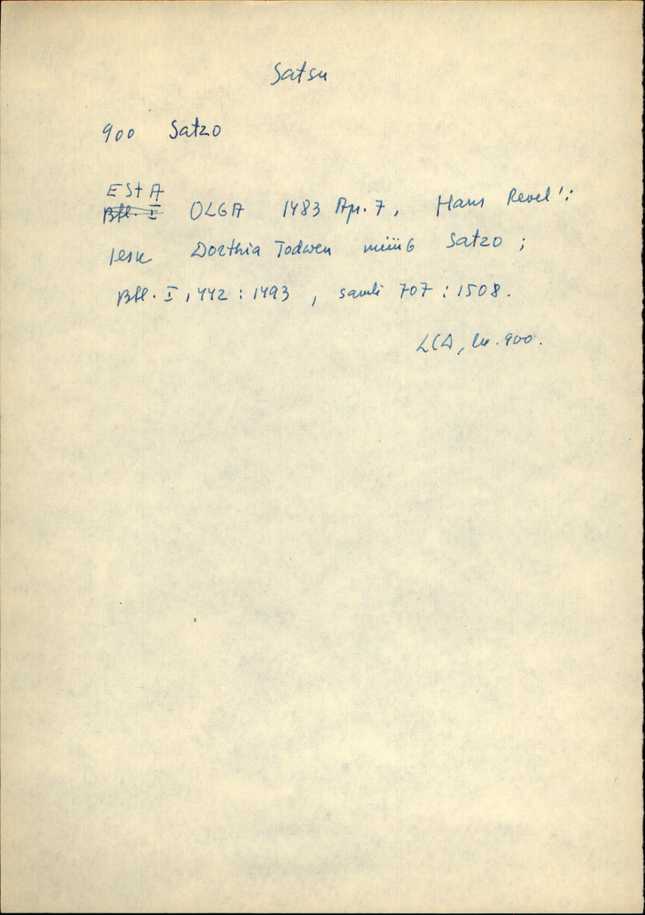 Satsu
900 Satzo
EStA
Bfl. I OLGA 1483 Apr. 7, Hans Revel':
lesk Dorthia Todwen müüb Satzo ;
Bfl. I, 442 : 1493 , samti 707 : 1508.
LCA, lk. 900.